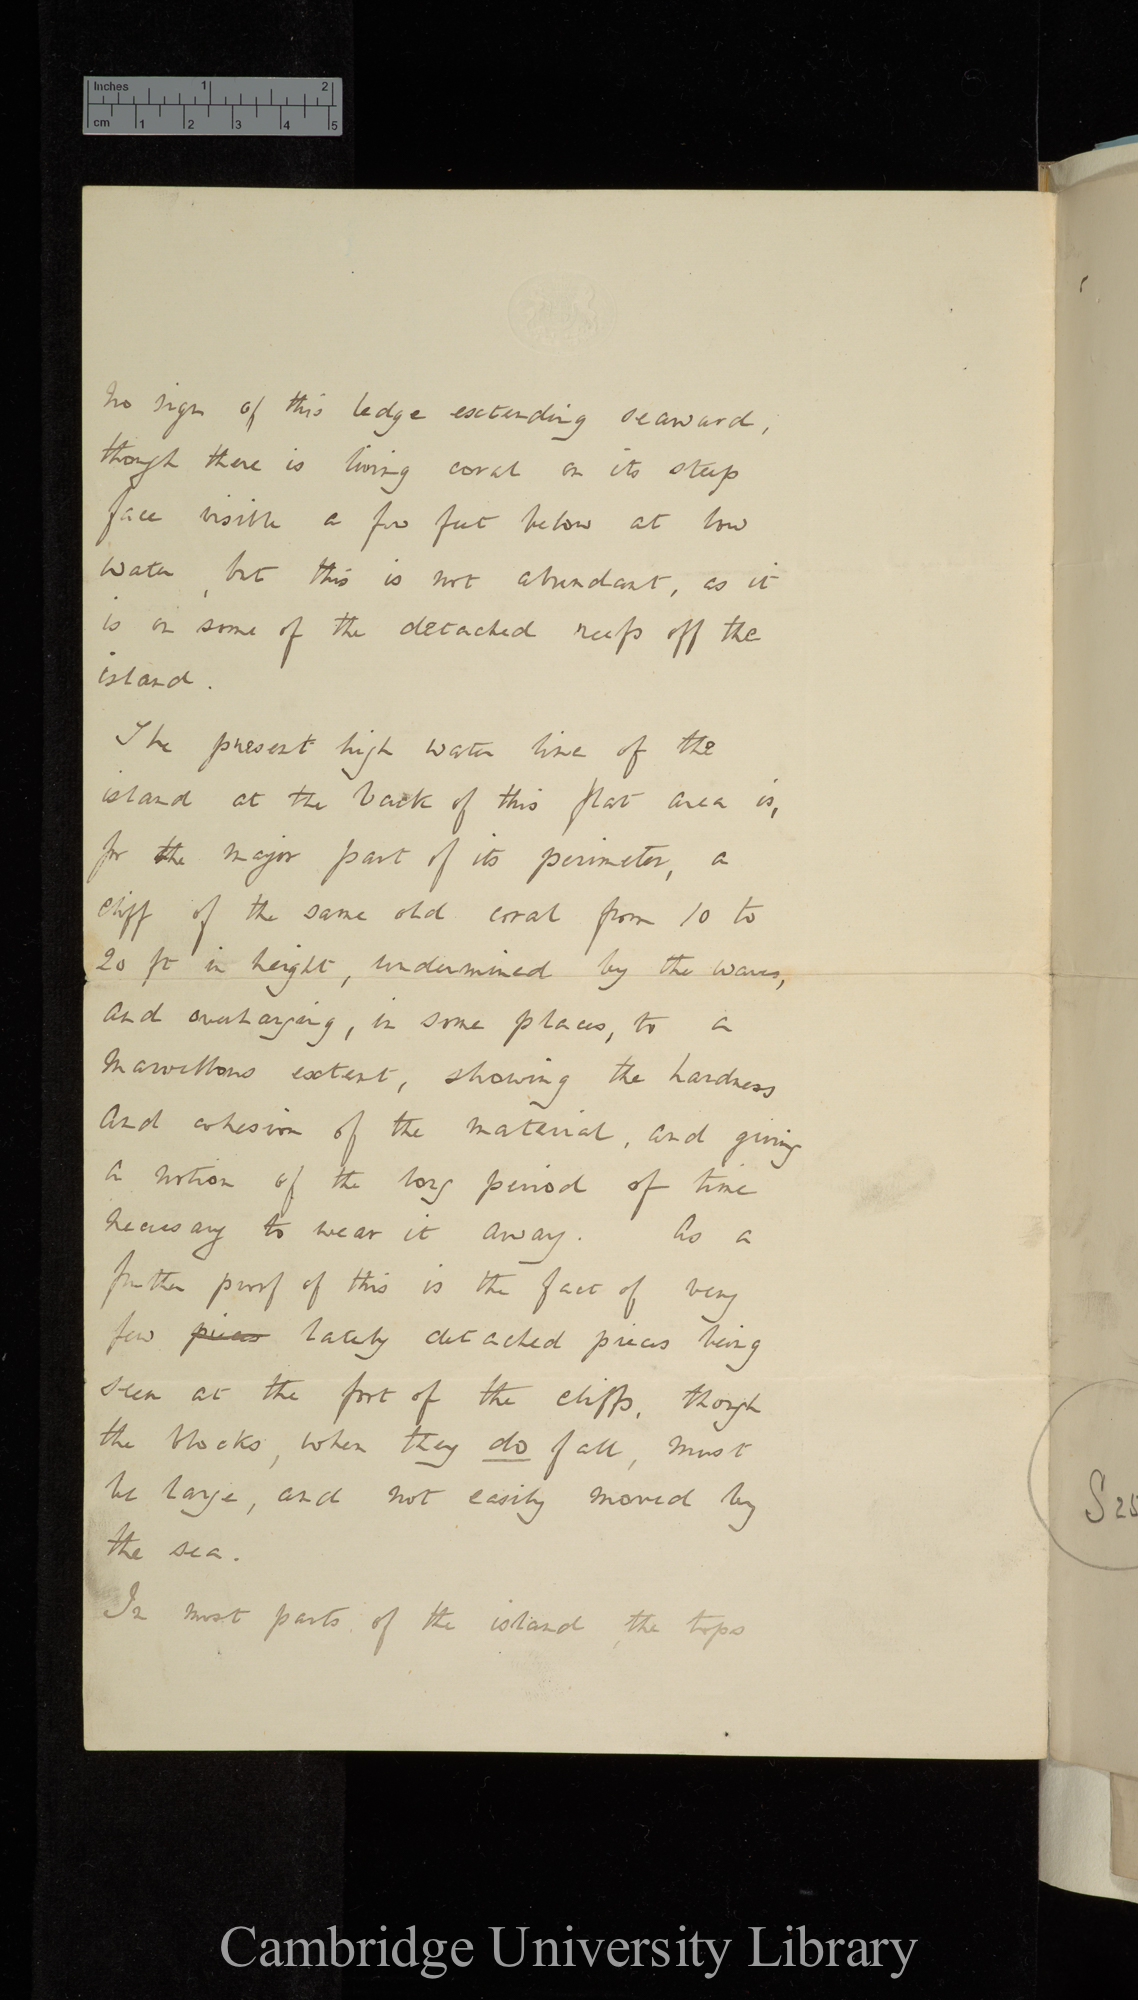 Inches 1 2
cm 1 2 3 4 5
no sign of this ledge extending seaward,
though there is living coral on its steep
face visible a few feet below at low
water, but this is not abundant, as it
is on some of the detached reefs off the
island.
The present high water line of the
island at the back of this flat area is,
for the major part of its perimeter, a
cliff of the same old coral from 10 to
20 ft in height, undermined by the waves,
and overhanging, in some places, to a
marvellous extent, showing the hardness
and cohesion of the material, and giving
a notion of the long period of time
necessary to wear it away. As a
further proof of this is the fact of very
few pieces lately detached pieces being
seen at the foot of the cliffs, though
the blocks, when they do fall, must
be large, and not easily moved by
the sea.
In most parts of the island, the tops
S 25
Cambridge University Library